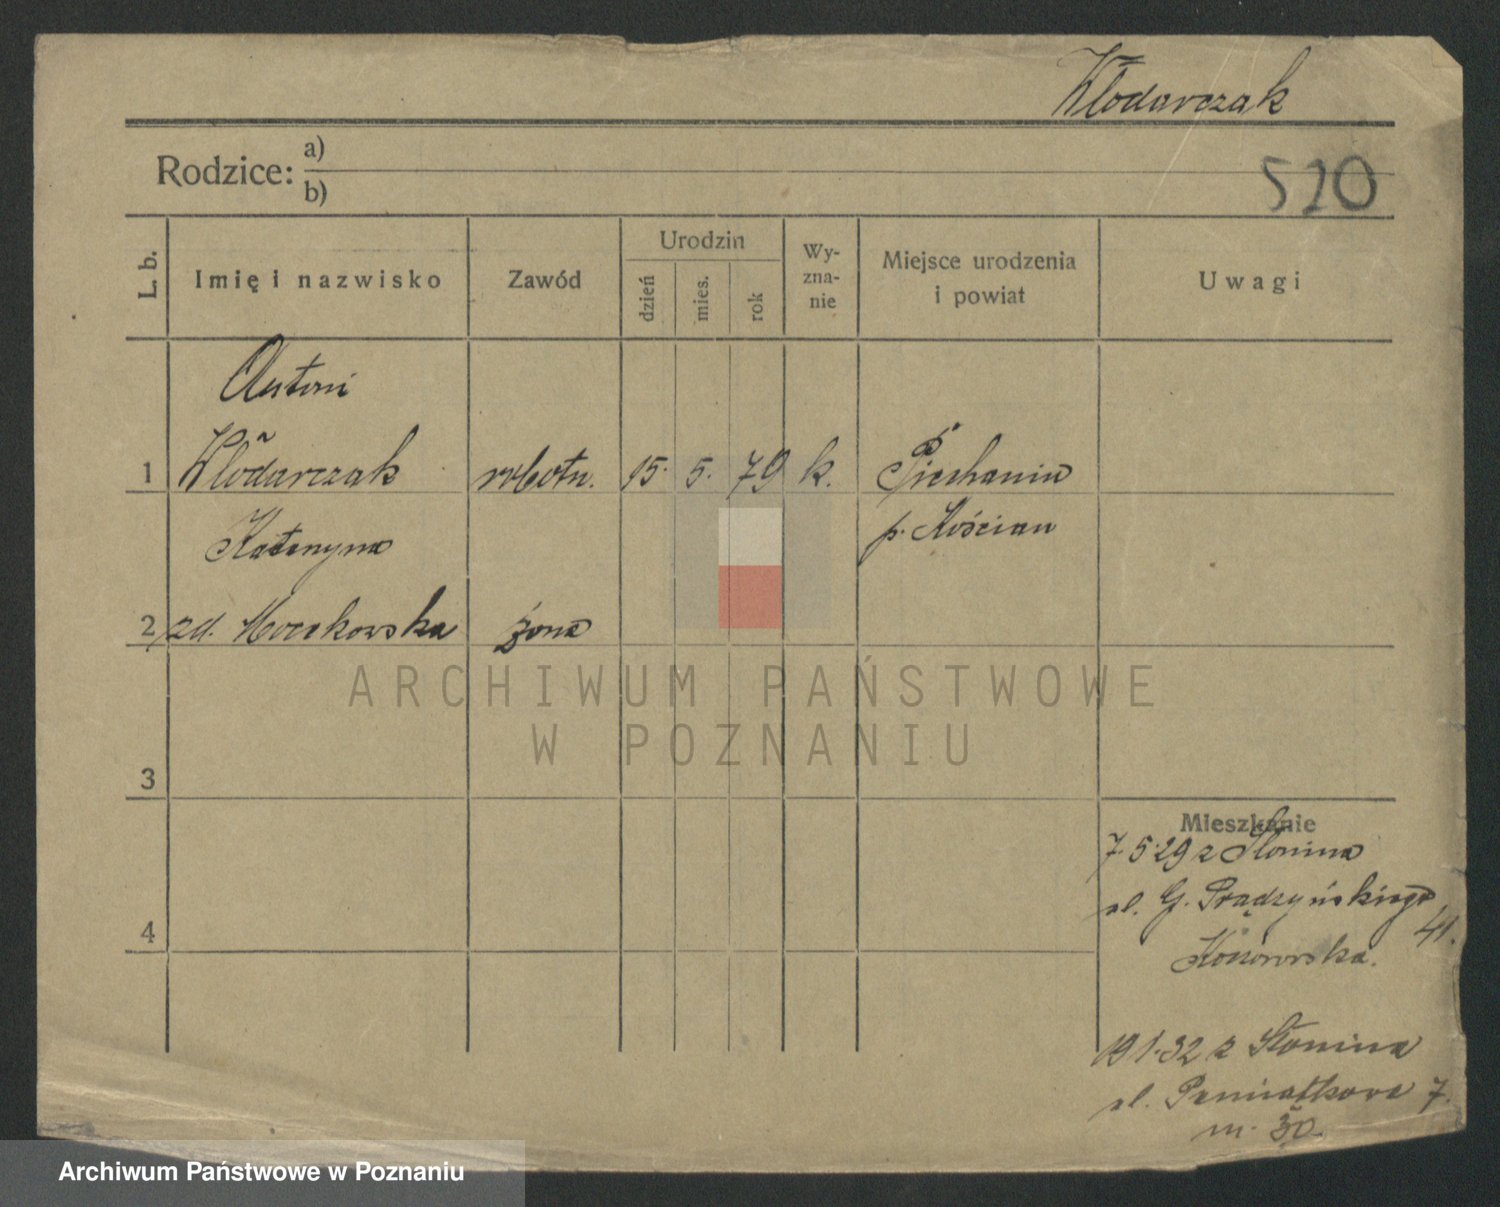 Włodarczak
Rodzice: a)
b)
520
L. b.
Imię i nazwisko
Zawód
Urodzin
dzień
mies.
rok
Wy-
zna-
nie
Miejsce urodzenia
i powiat
Uwagi
Antoni
1 Włodarczak robotn. 15. 5. 79 k. Piechanin
p. Kościan
Katarzyna
2 zd. żona
ARCHIWUM PAŃSTWOWE
W POZNANIU
3
4
Mieszkanie
7.5.29 z Słonina
ul. G. Prądzyńskiego
41.
19.1.32 z Słonina
ul. Pamiątkowa 7.
m. 30.
Archiwum Państwowe w Poznaniu